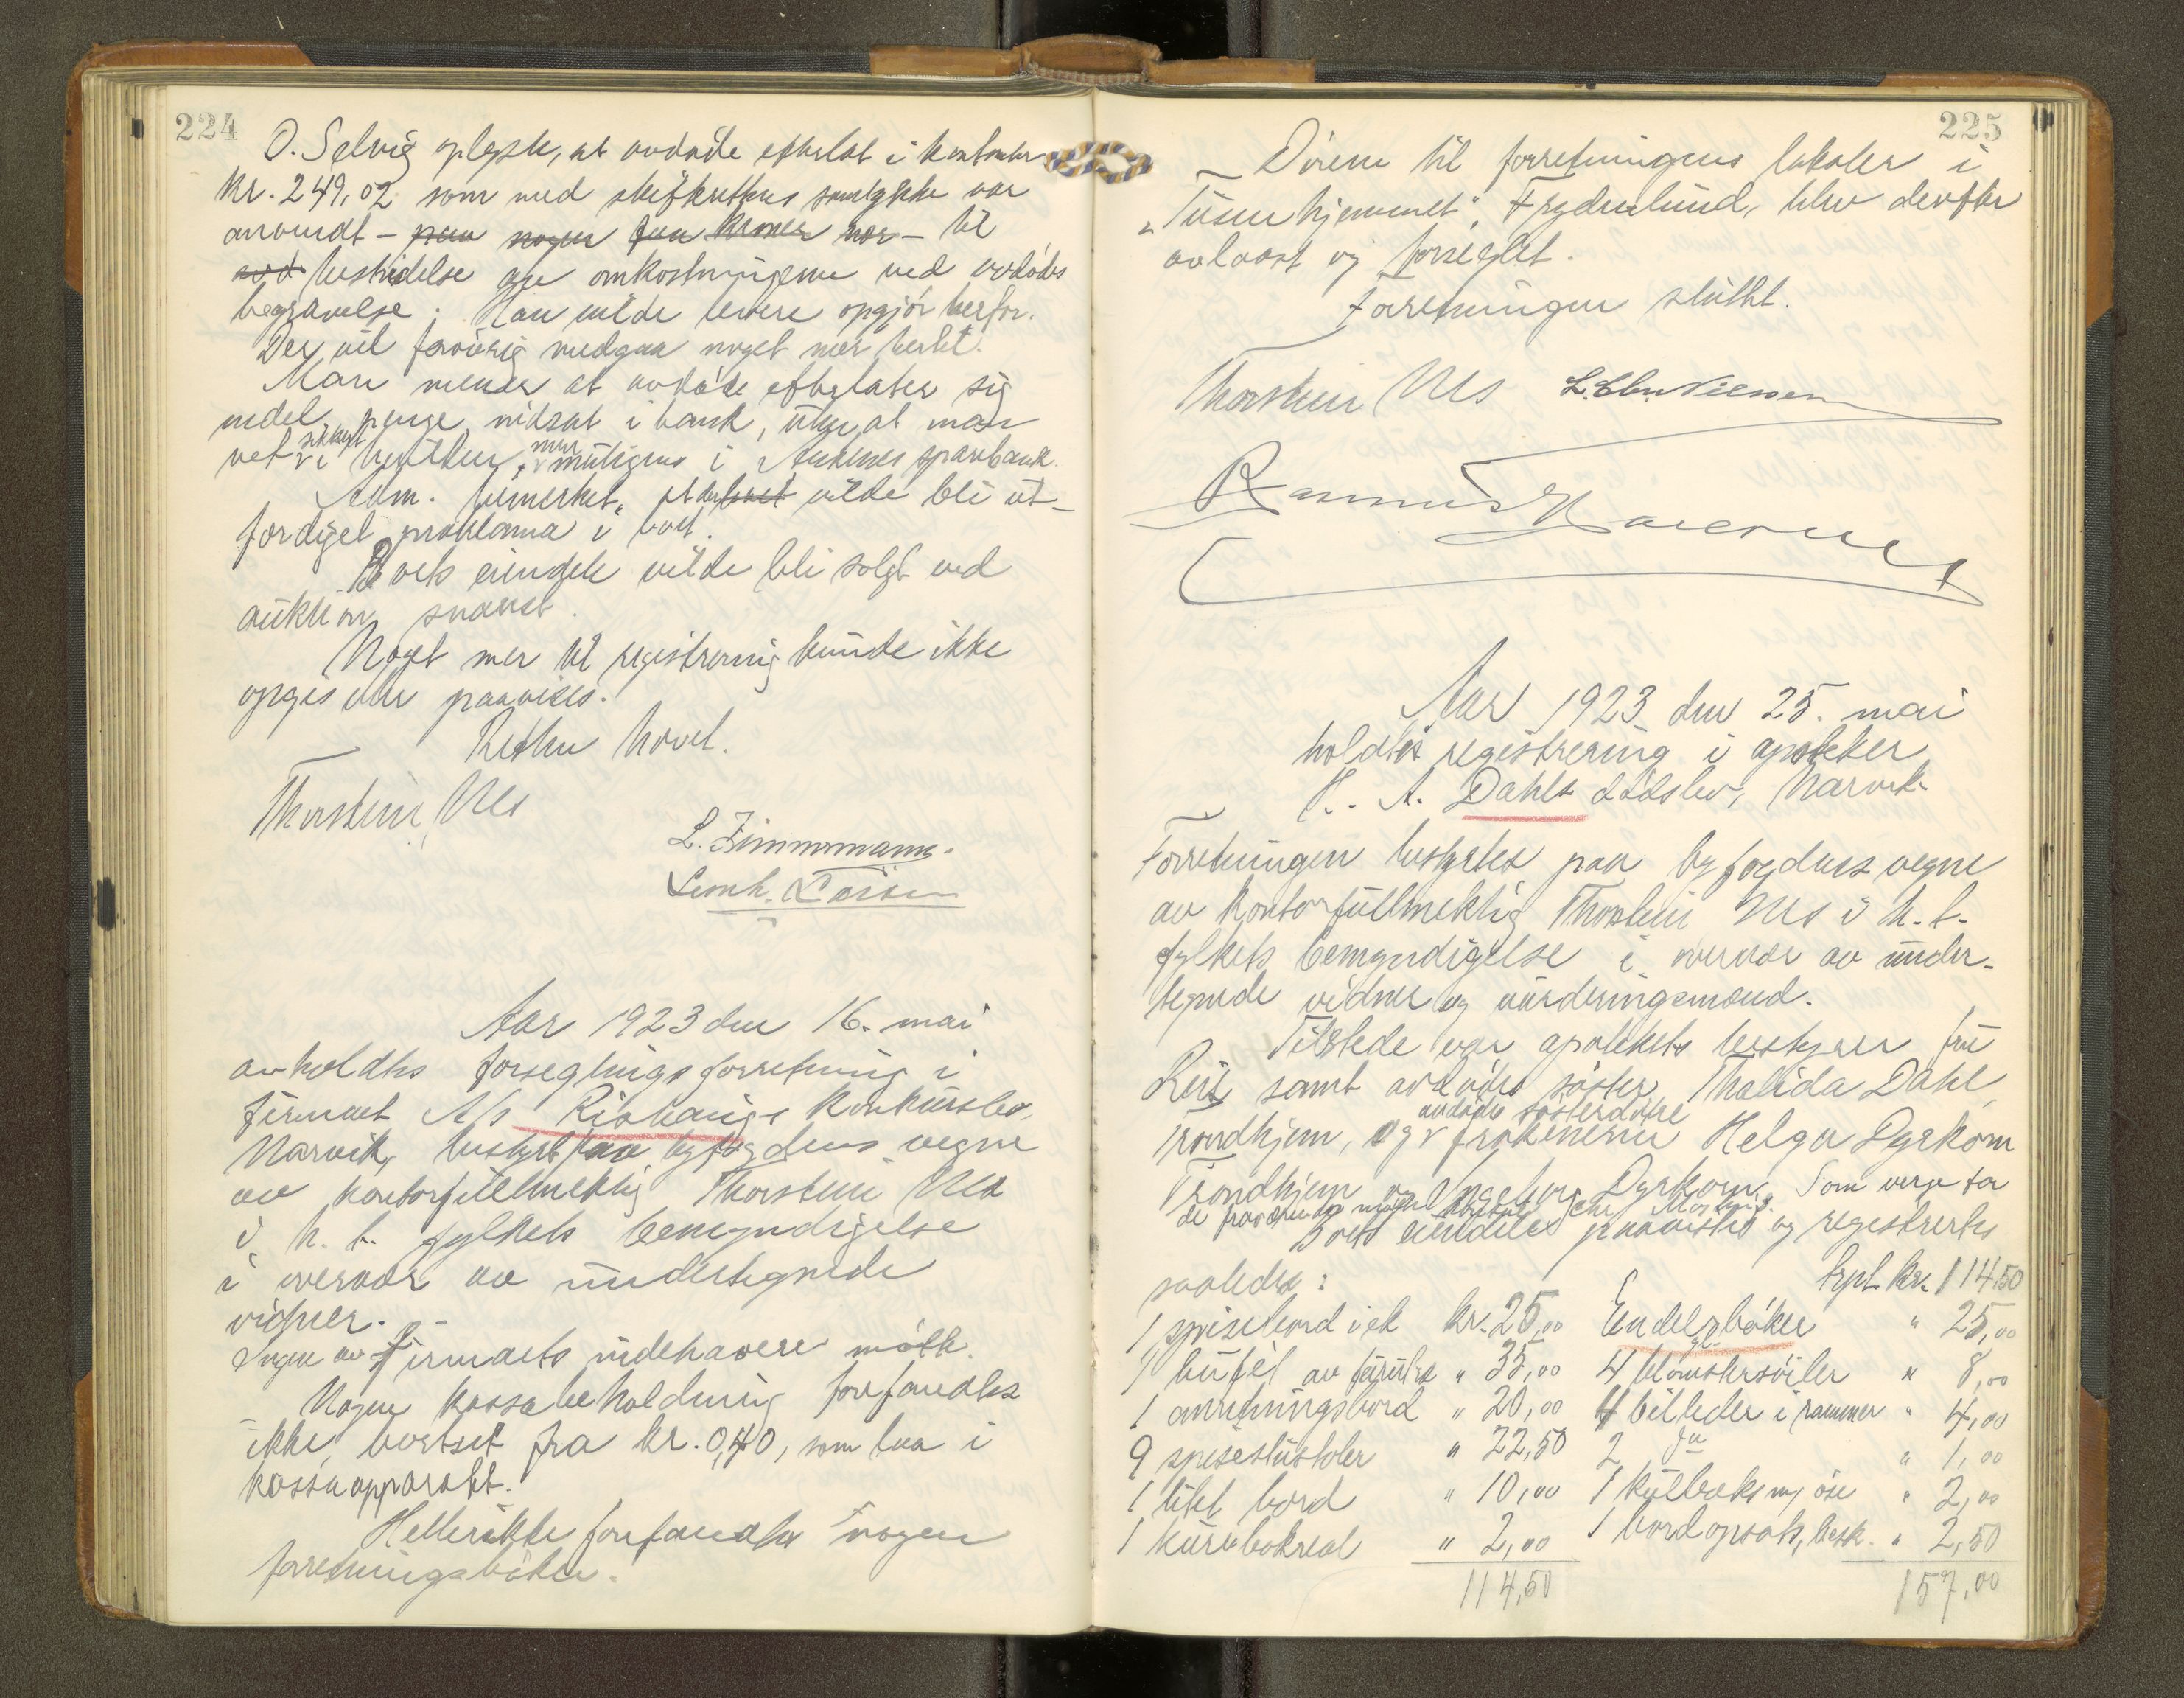 224
O. Selvig oplyste, at avdøde efterlot i kontanter
kr. 249,02 som med skifterettens samtykke var
anvendt – paa nogen faa kroner nær – til
ved bestridelse av omkostningerne ved avdødes
begravelse. Han vilde levere opgjør herfor.
Der vil forøvrig medgaa noget mer hertil.
Man mener at avdøde efterlater sig
endel penge indsat i bank, uten at man
vet sikkert i hvilken, men muligens i Ankenes sparebank.
Adm. bemerket, at der boet vilde bli ut-
færdiget proklama i boet.
Boets eiendele vilde bli solgt ved
auktion snarest.
Noget mer til registrering kunde ikke
opgis eller paavises.
Retten hævet.
Thorstein Nes
L. Zimmermann.
Lornh. Larsen
Aar 1923 den 16. mai
avholdtes forseglingsforretning i
firmaet A/s Riohaugs konkursbo,
Narvik, bestyrt paa byfogdens vegne
av kontorfuldmektig Thorstein Nes
i h. t. fylkets bemyndigelse
i overvær av undertegnede
vidner.
Ingen av Firmaets indehavere møtte.
Nogen kassabeholdning forefandtes
ikke, bortset fra kr. 0,40, som laa i
kassaapparatet.
Heller ikke forefandtes nogen
forretningsbøker.
225
Dørene til forretningens lokaler i
"Tusenhjemmet", Frydenlund, blev derefter
avlaast og forseglet.
Forretningen sluttet.
Thorstein Nes L. Chr. Nilssen
Rasmus
Aar 1923 den 25. mai
holdtes registrering i apoteker
K. A. Dahls dødsbo, Narvik.
Forretningen bestyrtes paa byfogdens vegne
av kontorfuldmektig Thorstein Nes i h. t.
fylkets bemyndigelse i overvær av under-
tegnede vidner og vurderingsmænd.
Tilstede var apotekets bestyrer fru
samt avdødes søster, Thalida Dahl,
Trondhjem, og avdødes søsterdøtre frøknerne Helga Dyrkorn
Trondhjem og Ingeborg Dyrkorn. Som verge for
de fraværende møtte
Boets eiendele paavistes og registrertes
saaledes:
Trpt. kr. 114,50
1 spisebord i ek kr. 25,00
1 bufet av furutræ " 35,00
1 anretningsbord " 20,00
9 spisestustoler " 22,50
1 litet bord " 10,00
1 kurvbokreol " 2,00
114,50
Endel gl. bøker " 25,00
4 blomstersøiler " 8,00
4 billeder i rammer " 4,00
2 do " 1,00
1 kulboks m/ øse " 2,00
1 bordopsats, besk. " 2,50
157,00